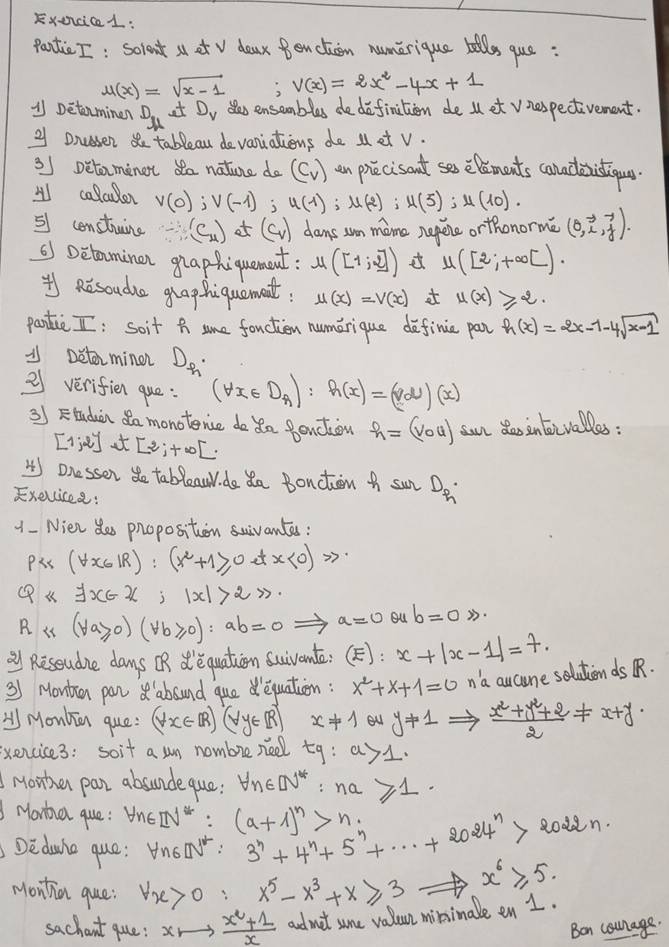 Exercice 1:
Partie I : Soient u et v deux fonction numérique telles que :
u(x) = √(x-1) ; V(x) = 2x² - 4x + 1
1) Déterminer D_u et D_v les ensembles de définition de u et v respectivement.
2) Dresser le tableau de variations de u et v.
3) Déterminer la nature de (C_v) en précisant ses éléments caractéristiques.
4) calculer v(0) ; v(-1) ; u(1) ; u(2) ; u(5) ; u(10).
5) construire (C_u) et (C_v) dans un même repère orthonormé (0, i⃗, j⃗).
6) Déterminer graphiquement : u([1;2]) et u([2;+∞[).
7) Résoudre graphiquement : u(x) = v(x) et u(x) ≥ 2.
partie II : soit h une fonction numérique définie par h(x) = 2x-1-4√(x-1)
1) Déterminer D_h.
2) vérifier que : (∀x∈D_h) : h(x) = (vou)(x)
3) Etudier la monotonie de la fonction h = (vou) sur les intervalles :
[1;2] et [2;+∞[.
4) Dresser le tableau.de la fonction h sur D_h.
Exercice2:
1- Nier les proposition suivantes :
P« (∀x∈IR) : (x²+1≥0 et x<0) ».
Q « ∃x∈ ; |x| > 2 ».
R « (∀a≥0) (∀b≥0) : ab=0 ⟹ a=0 ou b=0 ».
2) Résoudre dans IR l'équation suivante : (E) : x + |x-1| = 7.
3) Montrer par l'absurd que l'équation : x²+x+1=0 n'a aucune solution ds IR.
4) Montrer que : (∀x∈IR) (∀y∈IR) x≠1 ou y≠1 ⟹ (x²+y²+2)/2 ≠ x+y.
xercice3 : soit a un nombre réel tq : a>1.
Montrer par absurde que : ∀n∈IN* : na ≥ 1.
Montrer que : ∀n∈IN* : (a+1)ⁿ > n.
Déduire que : ∀n∈IN* : 3ⁿ + 4ⁿ + 5ⁿ + ... + 2024ⁿ > 2022n.
Montrer que : ∀x>0 : x⁵ - x³ + x ≥ 3 ⟹ x⁶ ≥ 5.
sachant que : x ↦ (x²+1)/x admet une valeur minimale en 1.
Bon courage.